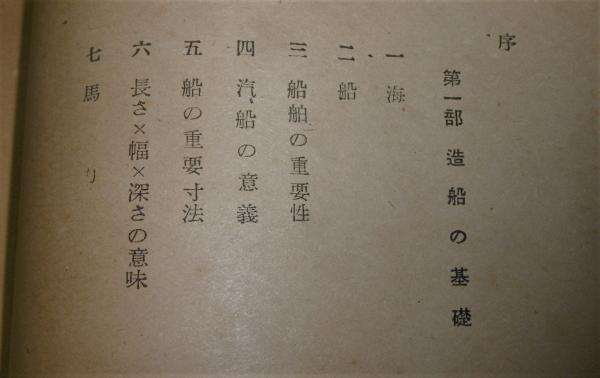 序
第一部 造船の基礎
一 海
二 船
三 船舶の重要性
四 汽船の意義
五 船の重要寸法
六 長さ×幅×深さの意味
七 馬リ